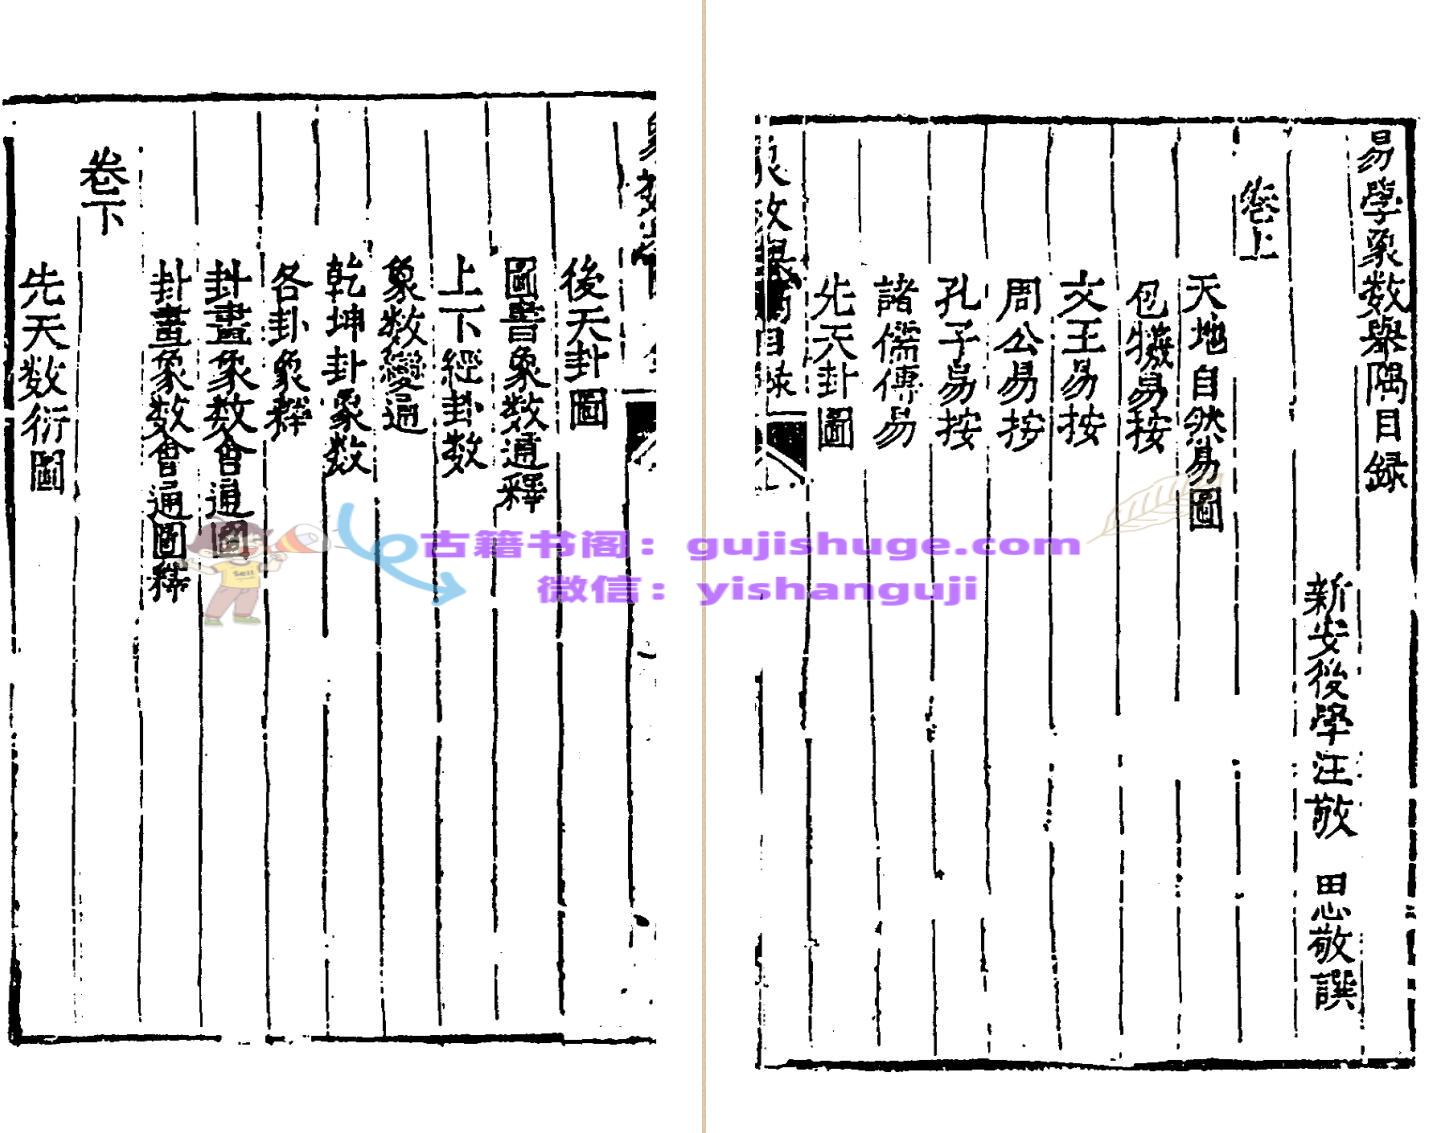 易学象数舉隅目録
新安後學汪敬思敬譔
卷上
天地自然易圖
包犧易按
文王易按
周公易按
孔子易按
諸儒傳易
先天卦圖
後天卦圖
圖書象数通釋
上下經卦数
象数變通
乾坤卦象数
各卦象釋
卦畫象数會通圖
卦畫象数會通圖釋
卷下
先天数衍圖
古籍书阁：gujishuge.com
微信：yishanguji